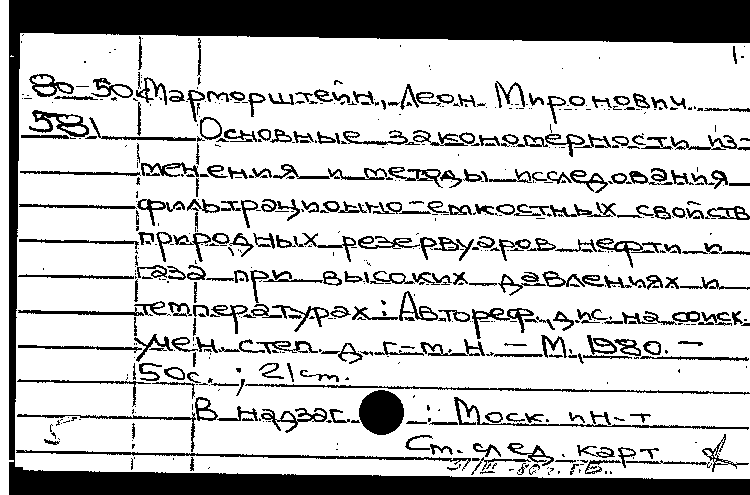 1.
80-50 Марморштейн, Леон Миронович.
581 Основные закономерности из-
менения и методы исследования
фильтрационно-емкостных свойств
природных резервуаров нефти и
газа при высоких давлениях и
температурах : Автореф. дис. на соиск.
учен. степ. д. г.-м. н. – М., 1980. –
50с. ; 21 см.
В надзаг. : Моск. ин-т
См. след. карт
31/III -80 г. Г.В.